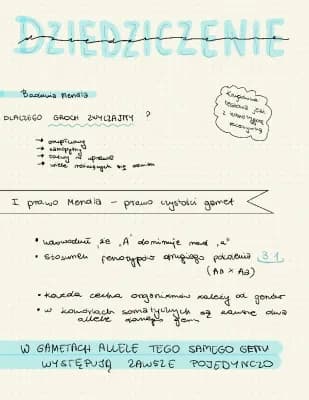 DZIEDZICZENIE
Badania Mendla
DLACZEGO GROCH ZWYCZAJNY ?
→ samopylny
→ łatwy w uprawie
→ wiele
I prawo Mendla – prawo czystości gamet
• że „A" dominuje nad „a"
• stosunek fenotypów drugiego pokolenia 3:1
(Aa × Aa)
• każda cecha organizmów zależy od genów
• w komórkach somatycznych są zawsze dwa
allele genu
W GAMETACH ALLELE TEGO SAMEGO GENU
WYSTĘPUJĄ ZAWSZE POJEDYNCZO